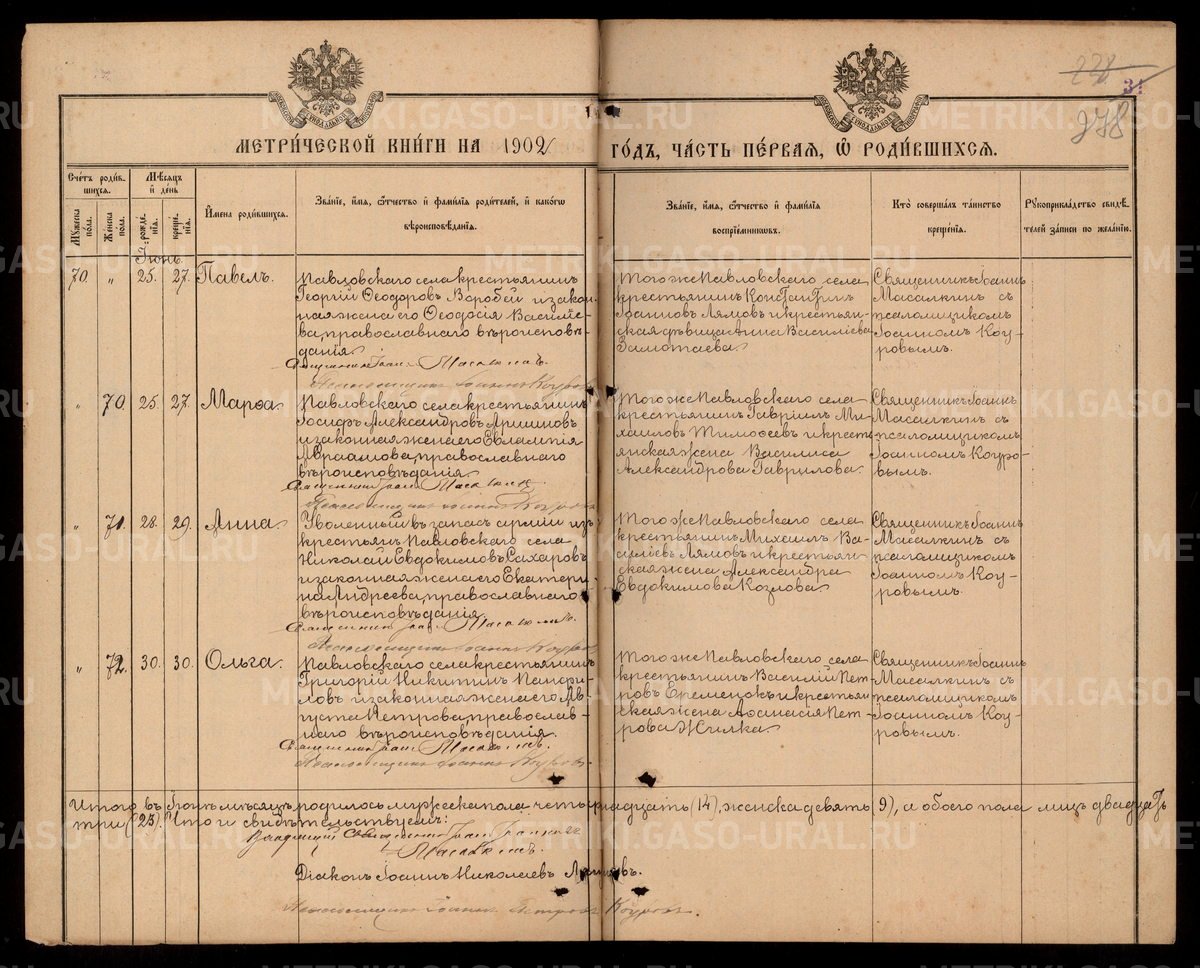 228
31
278
МЕТРИ́ЧЕСКОЙ КНИ́ГИ НА 1902 ГО́ДЪ, ЧА́СТЬ ПЕ́РВАЯ, Ѡ҆ РОДИ́ВШИХСЯ.
Сче́тъ роди́вшихся.
Мꙋжеска по́ла.
Же́нска по́ла.
Мѣ́сяцъ и҆ де́нь
рожде́нїя.
креще́нїя.
И҆мена̀ роди́вшихся.
Зва́нїе, и҆́мя, ѻ҆́тчество и҆ фамı́лїя роди́телей, и҆ како́гѡ
вѣроисповѣ́данїя.
Зва́нїе, и҆́мя, ѻ҆́тчество и҆ фамı́лїя
воспрїе́мниковъ.
Кто̀ соверша́лъ та́инство
креще́нїя.
Рꙋкоприкла́дство свидѣ́-
телей за́писи по жела́нїю.
Іюнь.
70. " 25. 27. Павелъ.
Павловскаго села крестьянинъ
Георгій Ѳеодоровъ Воробей и закон-
ная жена его Ѳеодосія Василіе-
ва, православнаго вѣроисповѣ-
данія.
Священникъ Іоан. Масалкинъ.
Псаломщикъ Іоаннъ Коуровъ
Того же Павловскаго села
крестьянинъ Константинъ
Іоанновъ Лямовъ и крестьян-
ская дѣвица Анна Василіева
Замотаева.
Священникъ Іоаннъ
Масалкинъ съ
псаломщикомъ
Іоанномъ Коу-
ровымъ.
" 70. 25. 27. Марѳа.
Павловскаго села крестьянинъ
Іосифъ Александровъ Аришновъ
и законная жена его Евлампія
Авраамова, православнаго
вѣроисповѣданія.
Священникъ Іоан. Масалкинъ
Псаломщикъ Іоаннъ Коуровъ
Того же Павловскаго села
крестьянинъ Гавріилъ Ми-
хаиловъ Тимофеевъ и кресть-
янская жена Василиса
Александрова Гаврилова.
Священникъ Іоаннъ
Масалкинъ съ
псаломщикомъ
Іоанномъ Коуро-
вымъ.
" 71. 28. 29. Анна.
Уволенный въ запасъ арміи изъ
крестьянъ Павловскаго села
Николай Евдокимовъ Сахаровъ
и законная жена его Екатери-
на Андреева, православнаго
вѣроисповѣданія.
Священникъ Іоан. Масалкинъ.
Псаломщикъ Іоаннъ Коуровъ
Того же Павловскаго села
крестьянинъ Михаилъ Ва-
силіевъ Лямовъ и крестьян-
ская жена Александра
Евдокимова Козлова.
Священникъ Іоаннъ
Масалкинъ съ
псаломщикомъ
Іоанномъ Коу-
ровымъ.
" 72. 30. 30. Ольга.
Павловскаго села крестьянинъ
Григорій Никитинъ Панфи-
ловъ и законная жена его Ав-
густа Петрова, православ-
наго вѣроисповѣданія.
Священникъ Іоан. Масалкинъ.
Псаломщикъ Іоаннъ Коуровъ.
Того же Павловскаго села
крестьянинъ Василій Пет-
ровъ Еремеюкъ и крестьян-
ская жена Аѳанасія Пет-
рова Жилка.
Священникъ Іоаннъ
Масалкинъ съ
псаломщикомъ
Іоанномъ Коу-
ровымъ.
Итого въ Іюнѣ мѣсяцѣ родилось мужеска пола четырнадцать (14), женска девять (9), и обоего пола лицъ двадцать
три (23). Что и свидѣтельствуемъ:
Священникъ Іоан.
Масалкинъ.
Діаконъ Іоаннъ Николаевъ
Псаломщикъ Іоаннъ Петровъ Коуровъ.
METRIKI.GASO-URAL.RU